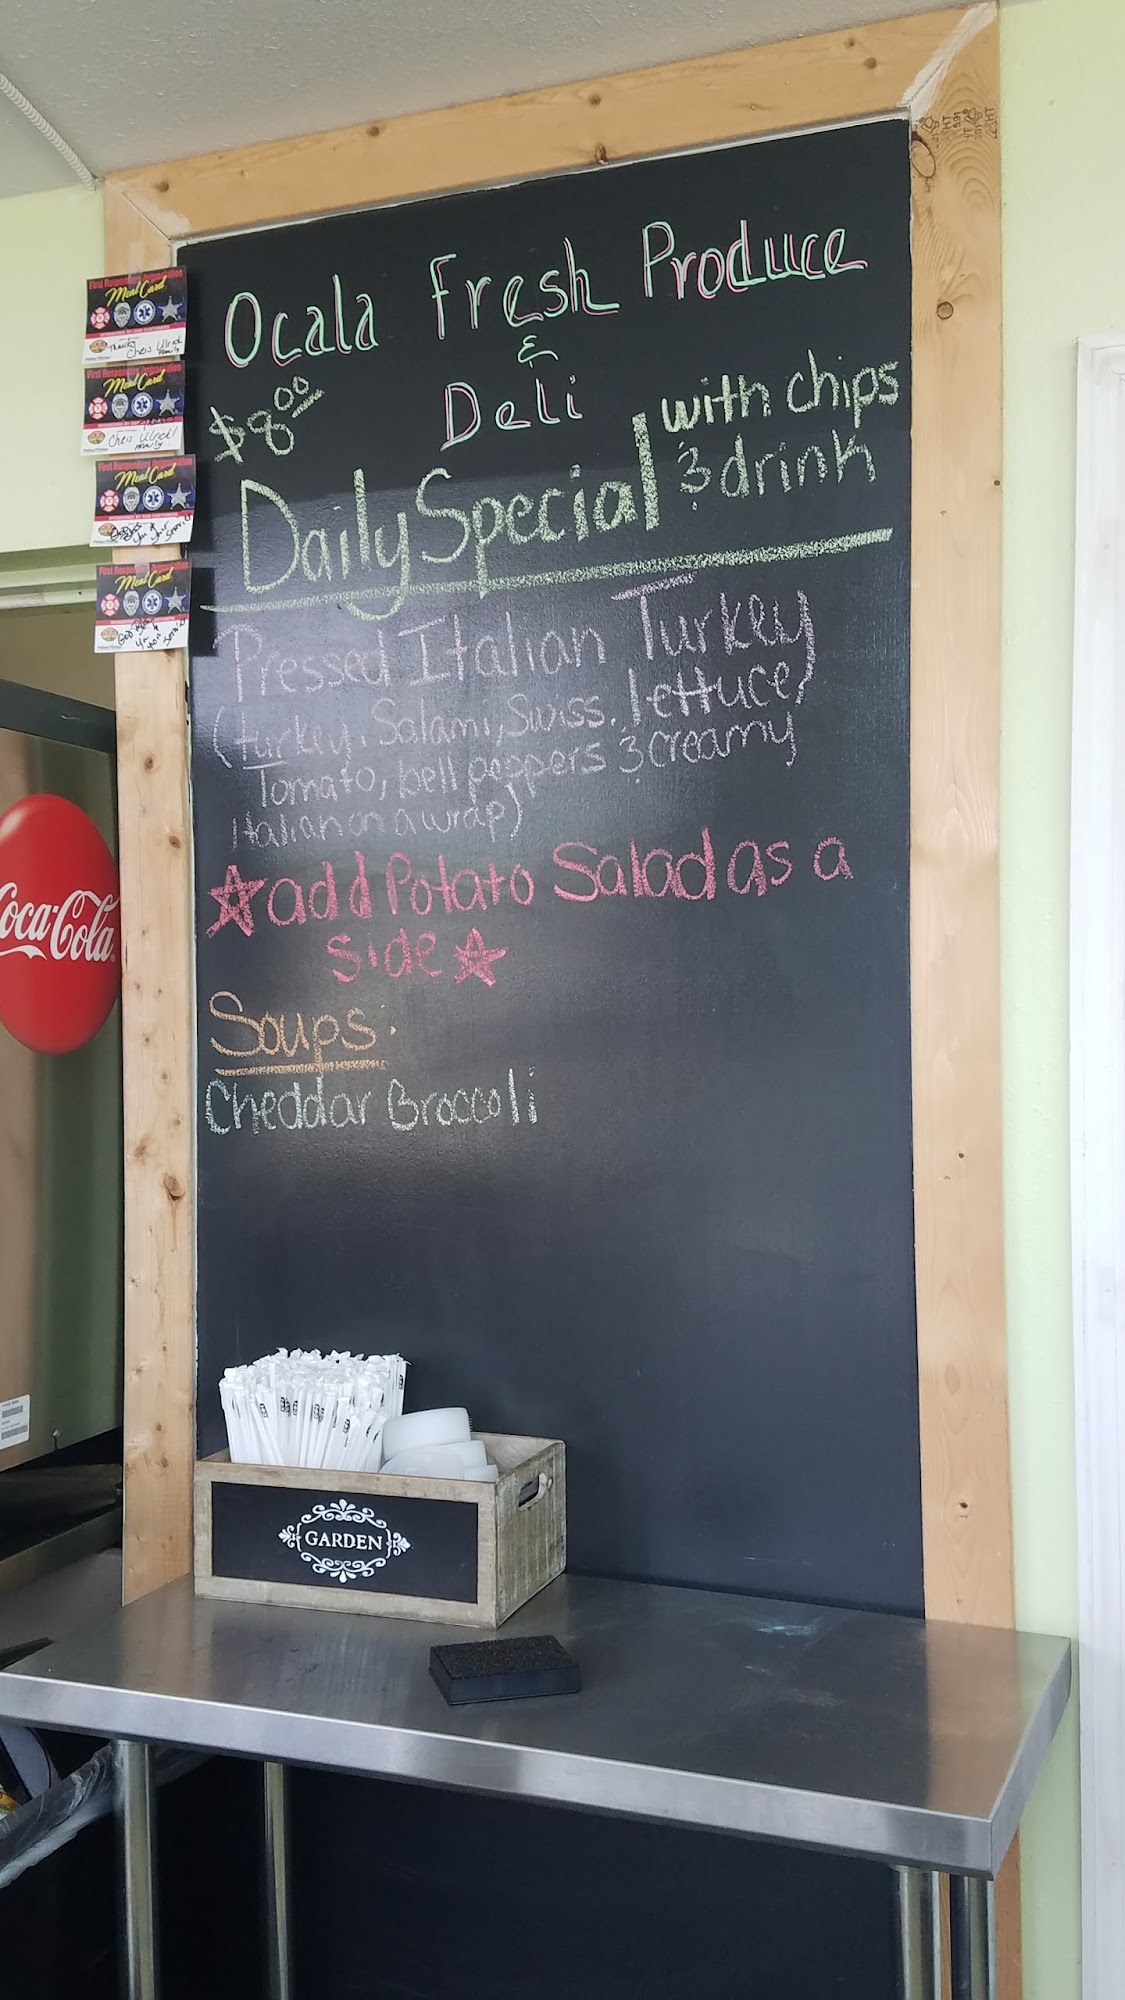 Ocala Fresh Produce
&
Deli
$8.00
Daily Special with chips
& drink
Pressed Italian Turkey
(turkey, Salami, Swiss, lettuce,
Tomato, bell peppers & creamy
italian on a wrap)
☆ add Potato Salad as a
side ☆
Soups:
Cheddar Broccoli
First Responders Appreciation
Meal Card
Thanks
Chris Ulrich
Family
First Responders Appreciation
Meal Card
Chris Ulrich
Family
First Responders Appreciation
Meal Card
First Responders Appreciation
Meal Card
God Bless
Coca-Cola
GARDEN